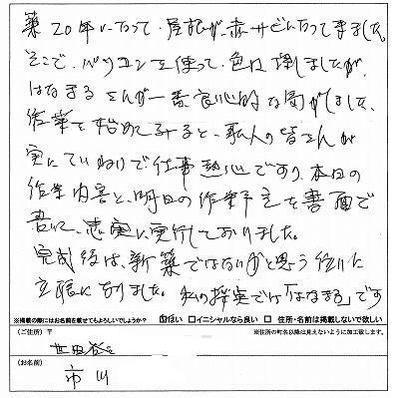 築20年になって、屋根が赤サビになってきました。
そこで、パソコンを使って、色々探しましたが、
はなまるさんが一番良心的な気がしました、
作業を始めてみると、職人の皆さんが
実にていねいで仕事熱心であり、本日の
作業内容と、明日の作業予定を書面で
書いて、忠実に実行しておりました。
完成後は、新築ではないかと思う位いに
立派になりました。私の採点では「はなまる」です
※掲載の際にはお名前を載せてもよろしいでしょうか? ☑はい □イニシャルなら良い □ 住所・名前は掲載しないで欲しい
(ご住所) 〒 ※住所の町名以降は見えないように加工致します。
世田谷区
(お名前)
市川